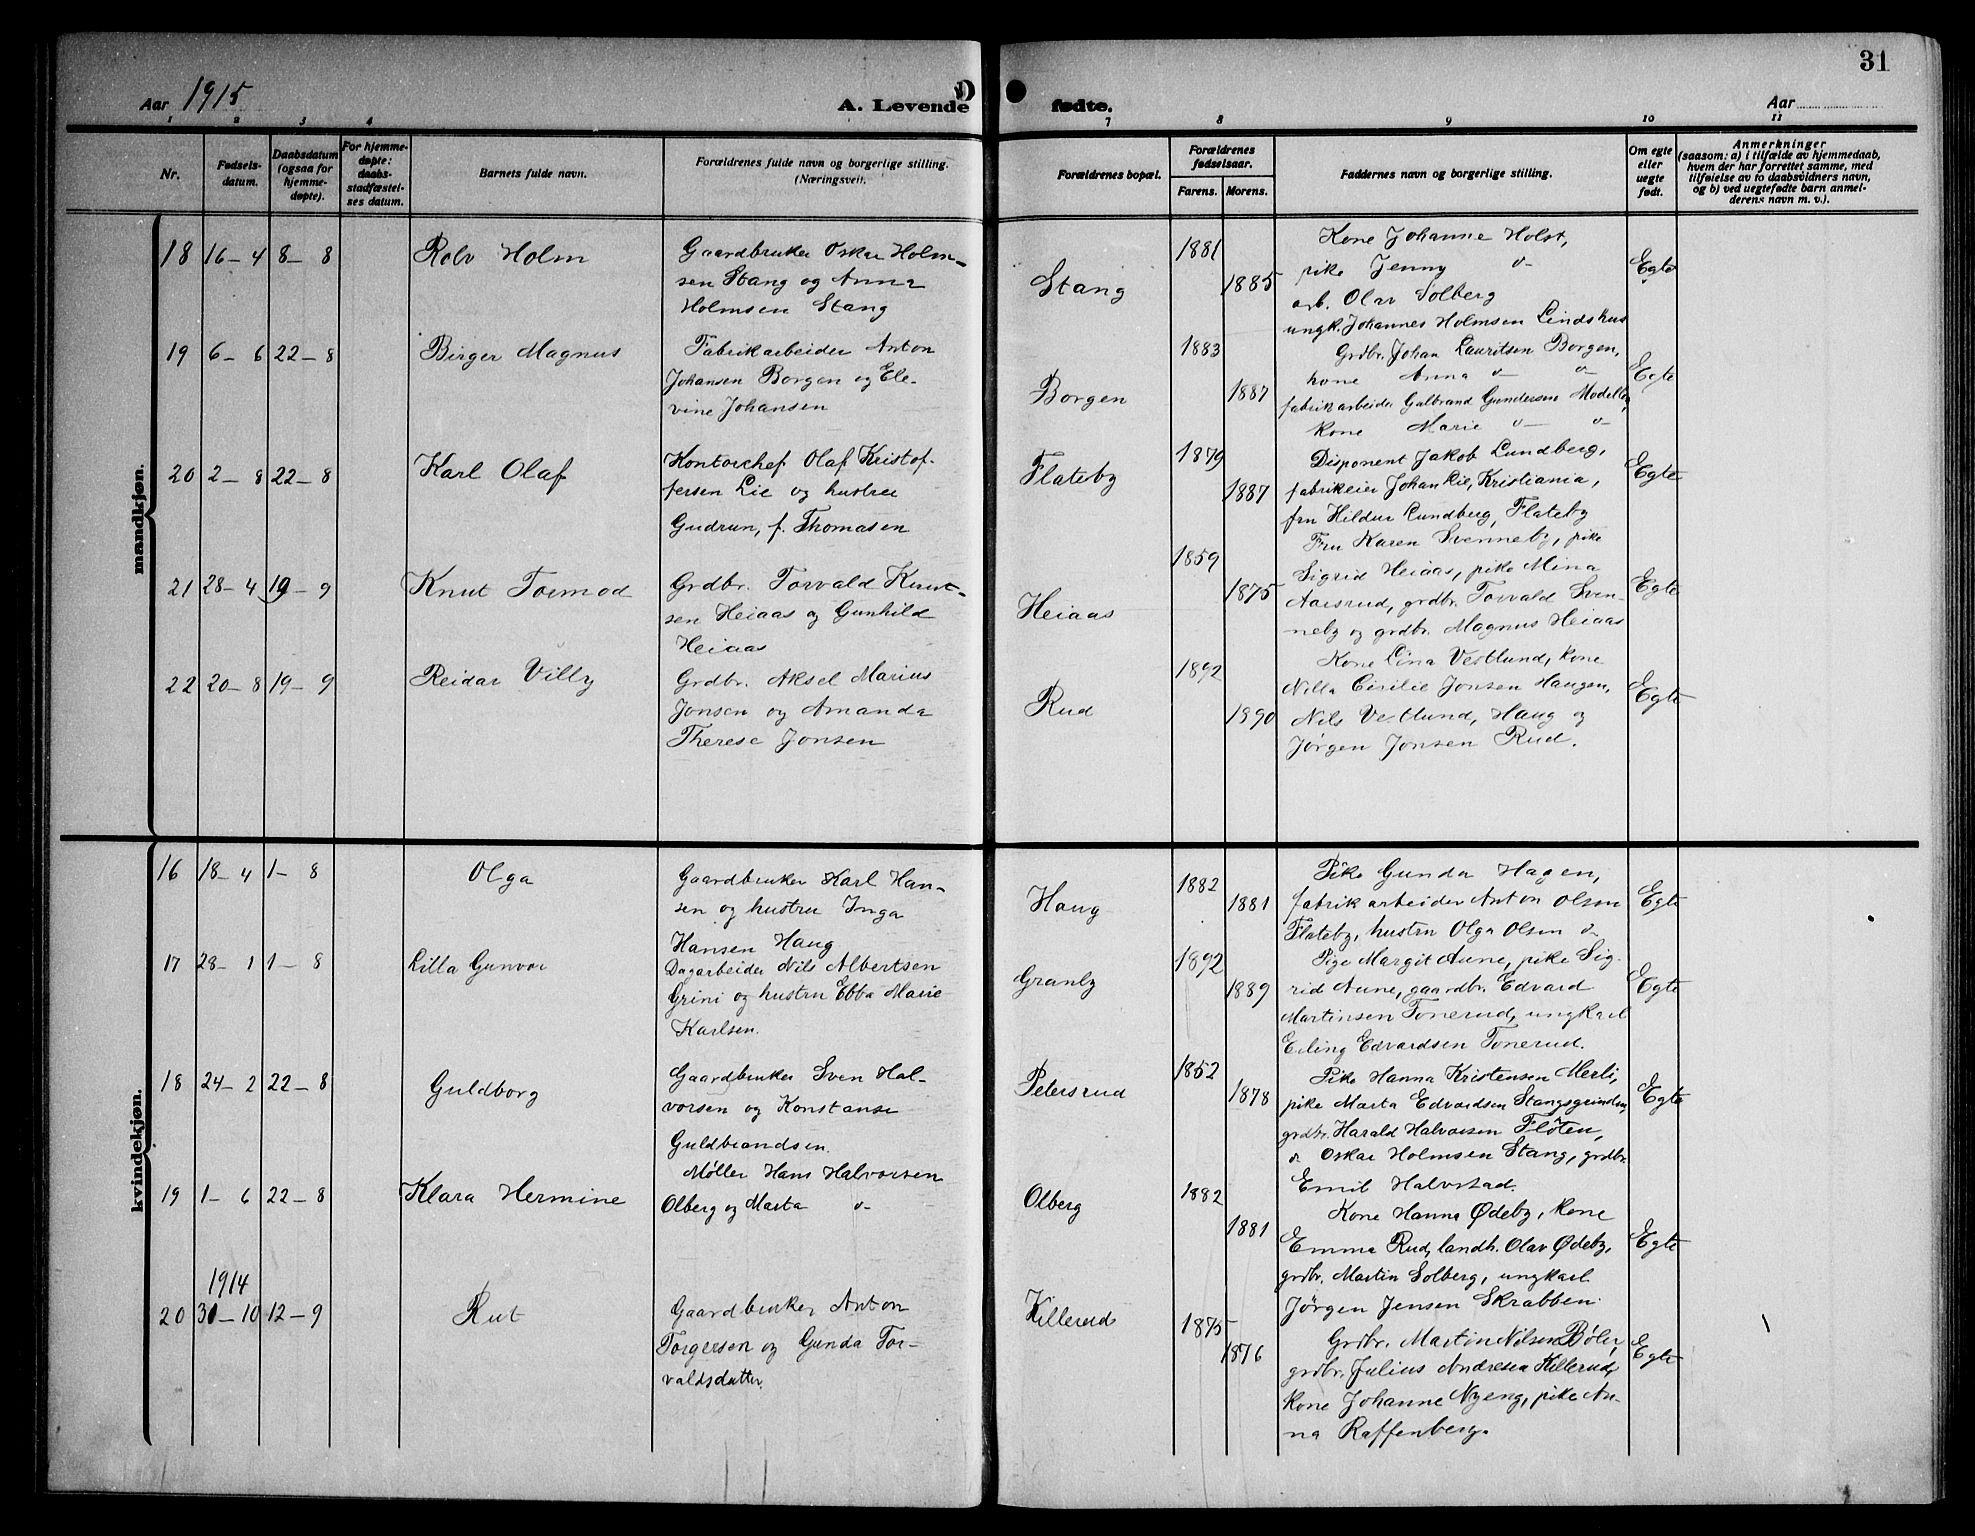 31
Aar 1915
A. Levende fødte.
Aar
1 2 3 4 7 8 9 10 11
Nr.
Fødsels-
datum.
Daabsdatum
(ogsaa for
hjemme-
døpte).
For hjemme-
døpte:
daabs-
stadfæstel-
ses datum.
Barnets fulde navn.
Forældrenes fulde navn og borgerlige stilling.
(Næringsvei).
Forældrenes bopæl.
Forældrenes
fødselsaar.
Farens. Morens.
Faddernes navn og borgerlige stilling.
Om egte
eller
uegte
født.
Anmerkninger
(saasom: a) i tilfælde av hjemmedaab,
hvem der har forrettet samme, med
tilføielse av to daabsvidners navn,
og b) ved uegtefødte barn anmel-
derens navn m. v.).
mandkjøn.
18 16-4 8-8 Rolv Holm
Gaardbruker Oskar Holm-
sen Stang og Anna
Holmsen Stang
Stang 1881 1885
Kone Johanne Holst,
pike Jenny -"-
arb. Olav Solberg
ungk. Johannes Holmsen Lindshus
Egte
19 6-6 22-8 Birger Magnus
Fabrikarbeider Anton
Johansen Borgen og Ele-
vine Johansen
Borgen 1883 1887
Grdbr. Johan Lauritsen Borgen,
kone Anna -"- -"-
fabrikarbeider Gulbrand Gundersen
kone Marie -"- -"-
Egte
20 2-8 22-8 Karl Olaf
Kontorchef Olaf Kristof-
fersen Lie og hustru
Gudrun, f. Thomasen
Flateby 1879 1887
Disponent Jakob Lundberg,
fabrikeier Johan Lie, Kristiania,
fru Hildur Lundberg, Flateby
Egte
21 28-4 19-9 Knut Tormod
Grdbr. Torvald Knut-
sen Heiaas og Gunhild
Heiaas
Heiaas 1859 1875
Fru Karen Svenneby, pike
Sigrid Heiaas, pike Mina
Aarsrud, grdbr. Torvald Sven-
neby og grdbr. Magnus Heiaas
Egte
22 20-8 19-9 Reidar Villy
Grdbr. Aksel Marius
Jonsen og Amanda
Therese Jonsen
Rud 1892 1890
Kone Lina Vestlund, kone
Nilla Cicilie Jonsen Haugen,
Nils Vestlund, Haug og
Jørgen Jonsen Rud.
Egte
kvindekjøn.
16 18-4 1-8 Olga
Gaardbruker Karl Han-
sen og hustru Inga
Hansen Haug
Haug 1882 1881
Pike Gunda Hagen,
fabrikarbeider Anton Olsen
Flateby, hustru Olga Olsen -"-
Egte
17 28-1 1-8 Lilla Gunvor
Dagarbeider Nils Albertsen
Grini og hustru Ebba Marie
Karlsen.
Granby 1892 1889
Pige Margit Aune, pike Sig-
rid Aune, gaardbr. Edvard
Martinsen Tonerud, ungkarl
Erling Edvardsen Tonerud.
Egte
18 24-2 22-8 Guldborg
Gaardbruker Sven Hal-
vorsen og Konstanse
Guldbrandsen.
Petersrud 1852 1878
Pike Hanna Kristensen Merli,
pike Marta Edvardsen Stangsgrinden
grdbr. Harald Halvorsen Fløten,
-"- Oskar Holmsen Stang, grdbr.
Emil Halvstad.
Egte
19 1-6 22-8 Klara Hermine
Møller Hans Halvorsen
Olberg og Marta -"-
Olberg 1882 1881
Kone Hanna Ødeby, kone
Emma Rud, landh. Olav Ødeby,
grdbr. Martin Solberg, ungkarl
Jørgen Jensen Skrabben.
Egte
1914
20 31-10 12-9 Rut
Gaardbruker Anton
Torgersen og Gunda Tor-
valdsdatter.
Killerud 1875 1876
Grdbr. Martin Nilsen Bøler,
grdbr. Julius Andresen Killerud,
kone Johanne Nyeng, pike An-
na Raffenberg.
Egte